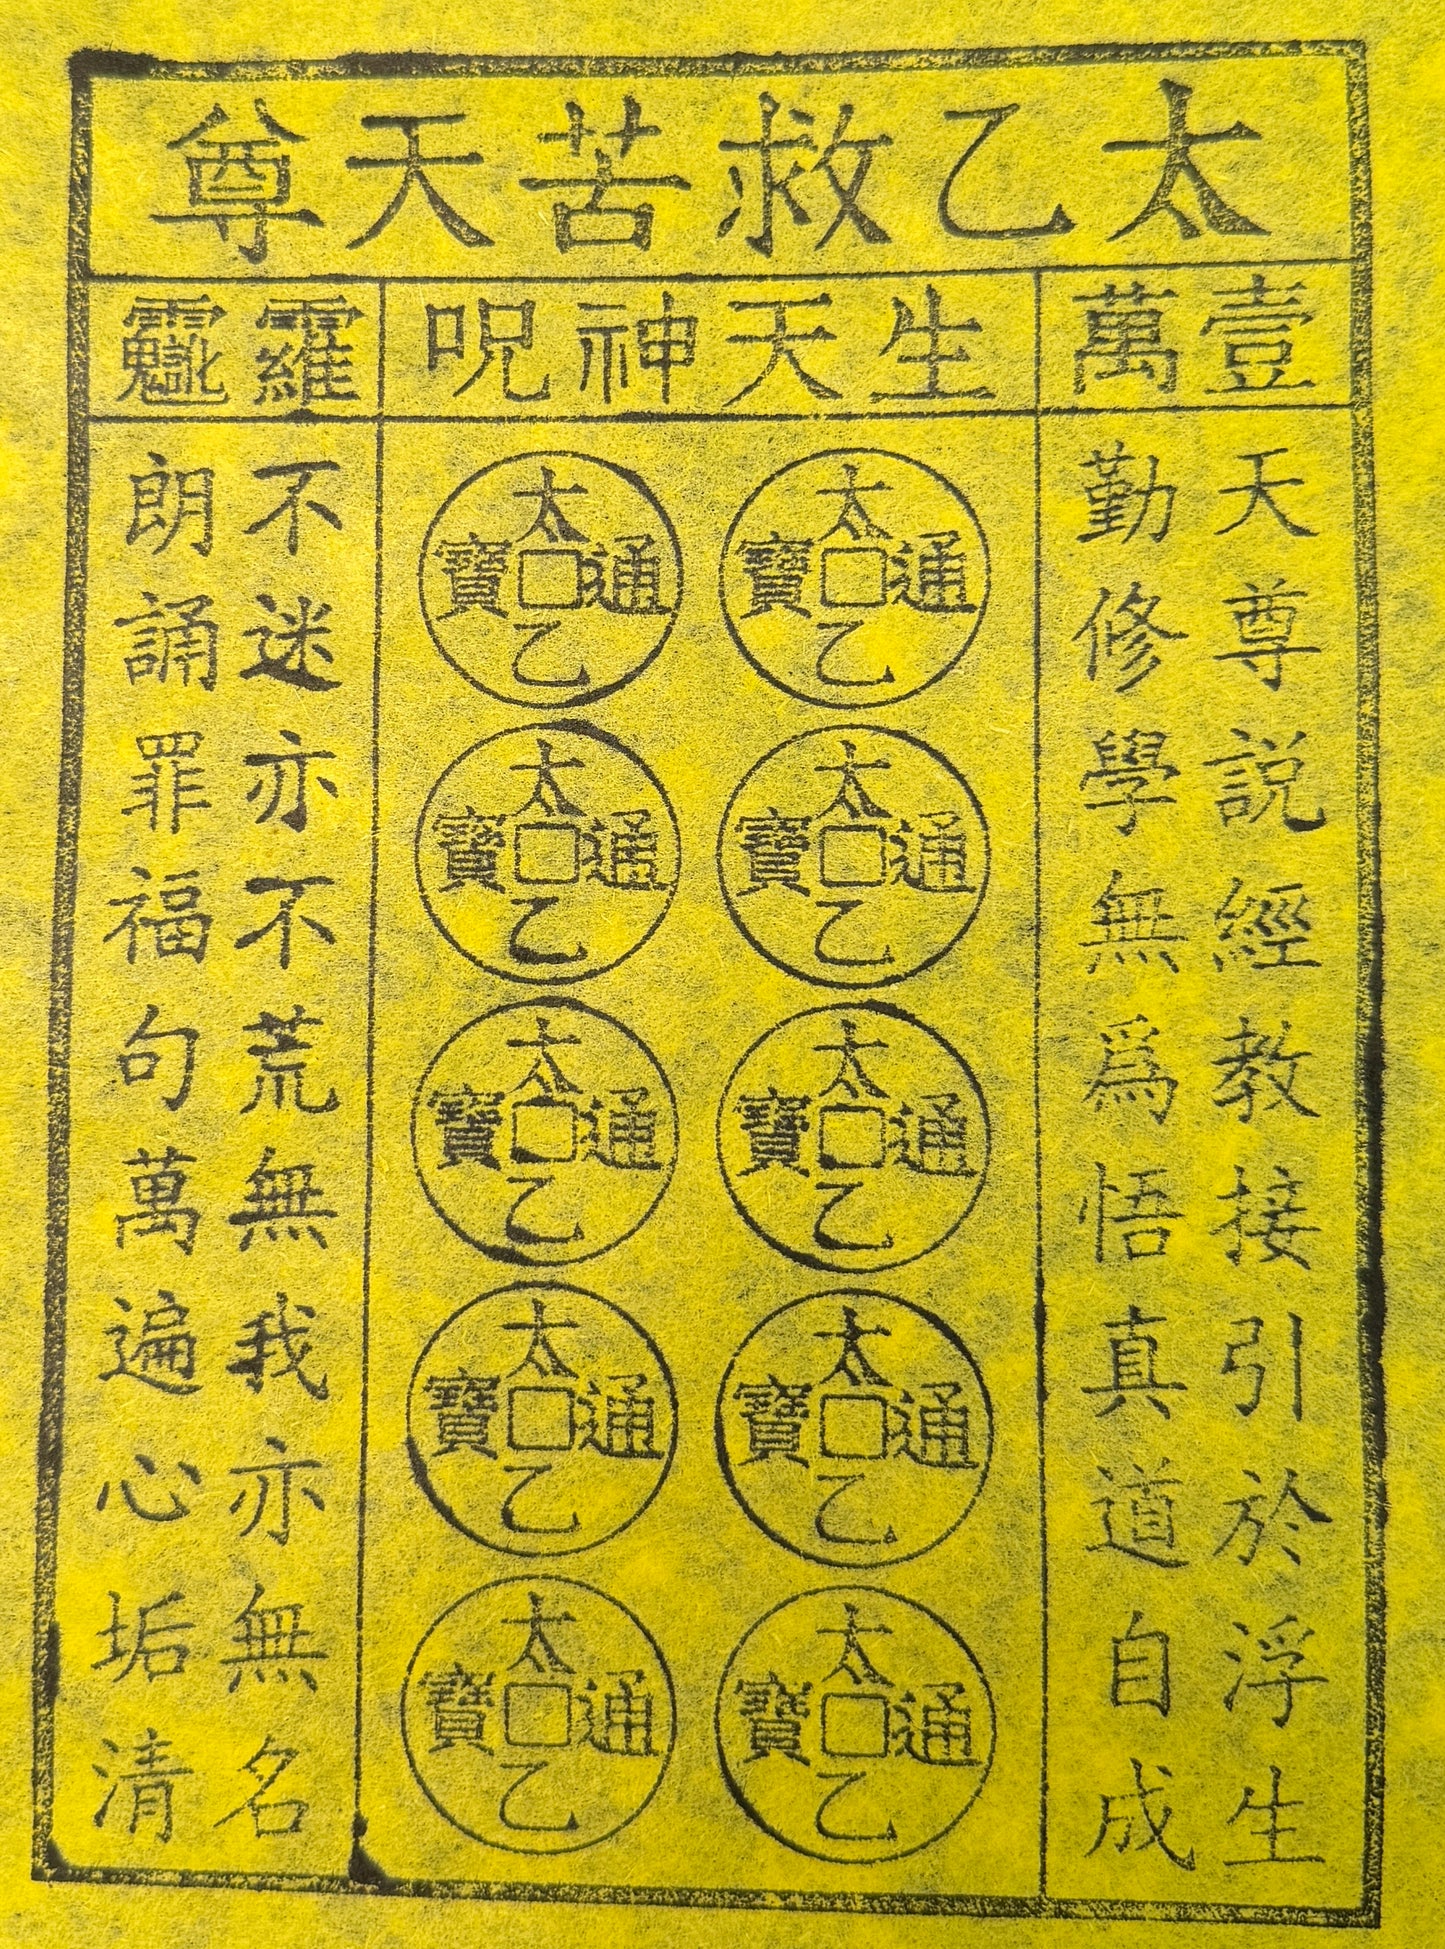 太乙救苦天尊
壹萬
生天神咒
天尊說經教接引於浮生
勤修學無爲悟真道自成
太乙通寶
太乙通寶
太乙通寶
太乙通寶
太乙通寶
太乙通寶
太乙通寶
太乙通寶
太乙通寶
太乙通寶
不迷亦不荒無我亦無名
朗誦罪福句萬遍心垢清